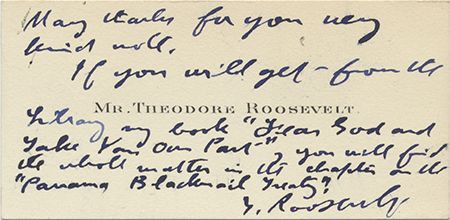 Many thanks for your very
kind note.
If you will get from the
MR. THEODORE ROOSEVELT.
library my book "Fear God and
Take Your Own Part" you will find
the whole matter in the chapter on the
"Panama Blackmail Treaty".
T. Roosevelt